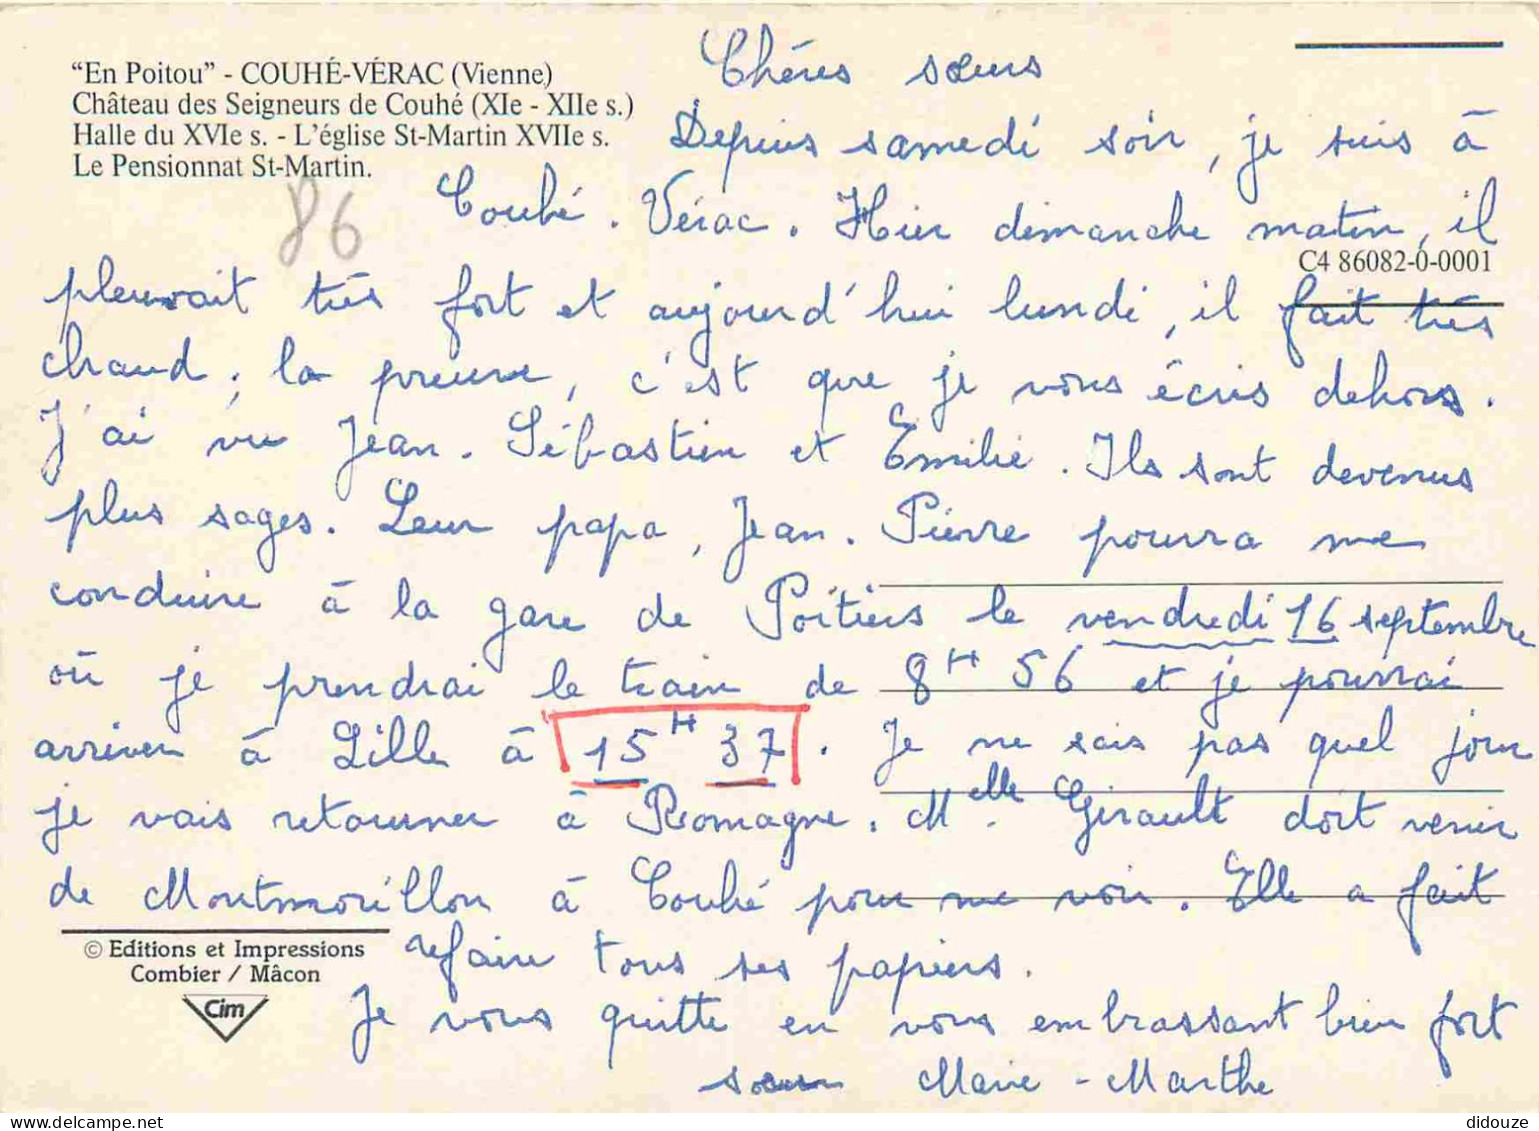 "En Poitou" - COUHÉ-VÉRAC (Vienne)
Château des Seigneurs de Couhé (XIe - XIIe s.)
Halle du XVIe s. - L'église St-Martin XVIIe s.
Le Pensionnat St-Martin.
86
C4 86082-0-0001
Chères sœurs
Depuis samedi soir, je suis à
Couhé. Vérac. Hier dimanche matin, il
pleuvait très fort et aujourd'hui lundi, il fait très
chaud; la preuve, c'est que je vous écris dehors.
J'ai vu Jean. Sébastien et Emilie. Ils sont devenus
plus sages. Leur papa, Jean. Pierre pourra me
conduire à la gare de Poitiers le vendredi 16 septembre
où je prendrai le train de 8H 56 et je pourrai
arriver à Lille à 15H 37. Je ne sais pas quel jour
je vais retourner à Romagne. Melle Girault doit venir
de Montmorillon à Couhé pour me voir. Elle a fait
refaire tous ses papiers.
Je vous quitte en vous embrassant bien fort
sœur Marie-Marthe
© Editions et Impressions
Combier / Mâcon
Cim
didouze